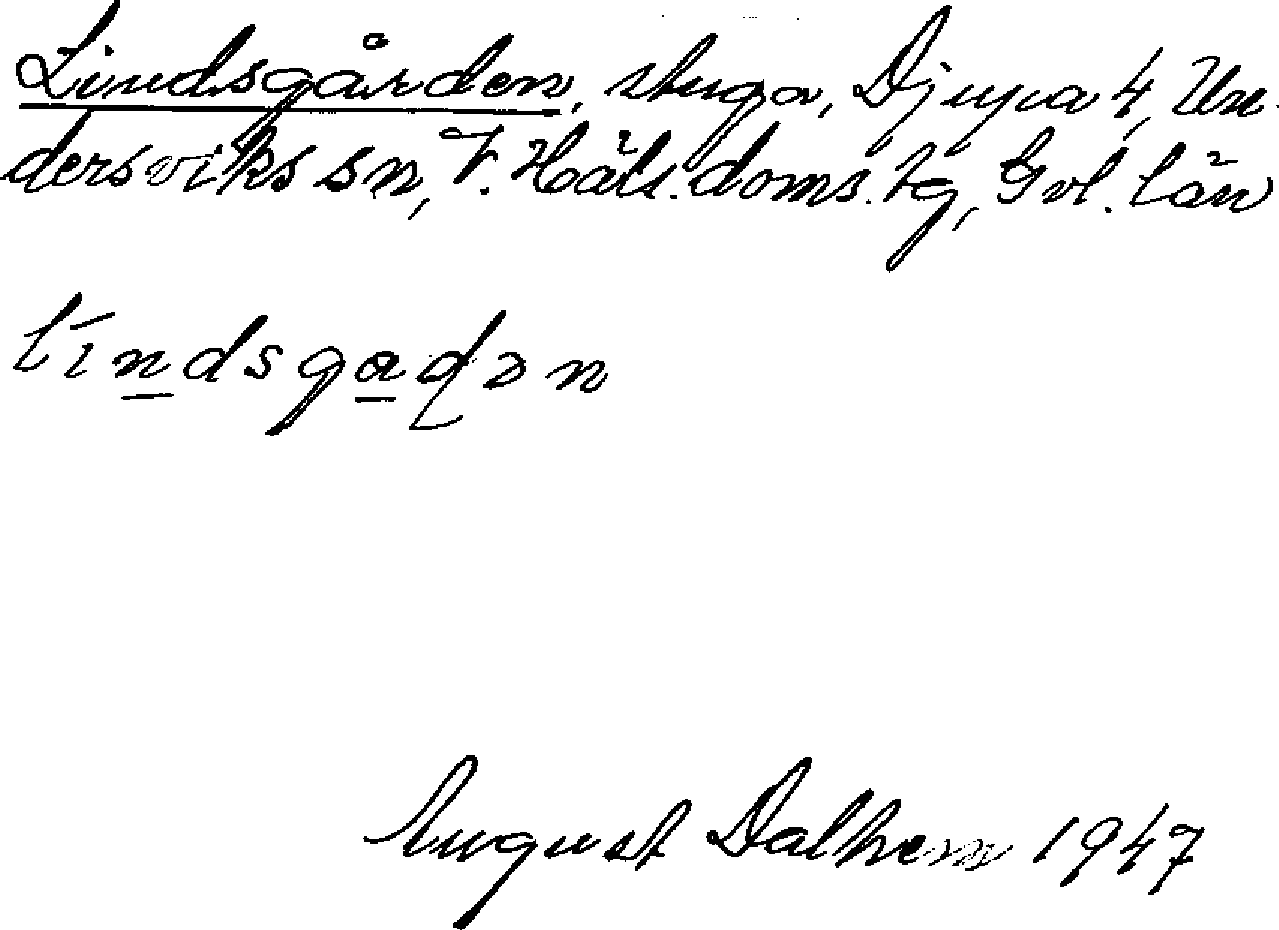 Lindsgården, stuga, Djupa 4, Un-
dersviks sn, V. Häls. doms. tg, Gvl. län
lindsgaɖən
August Dalhem 1947